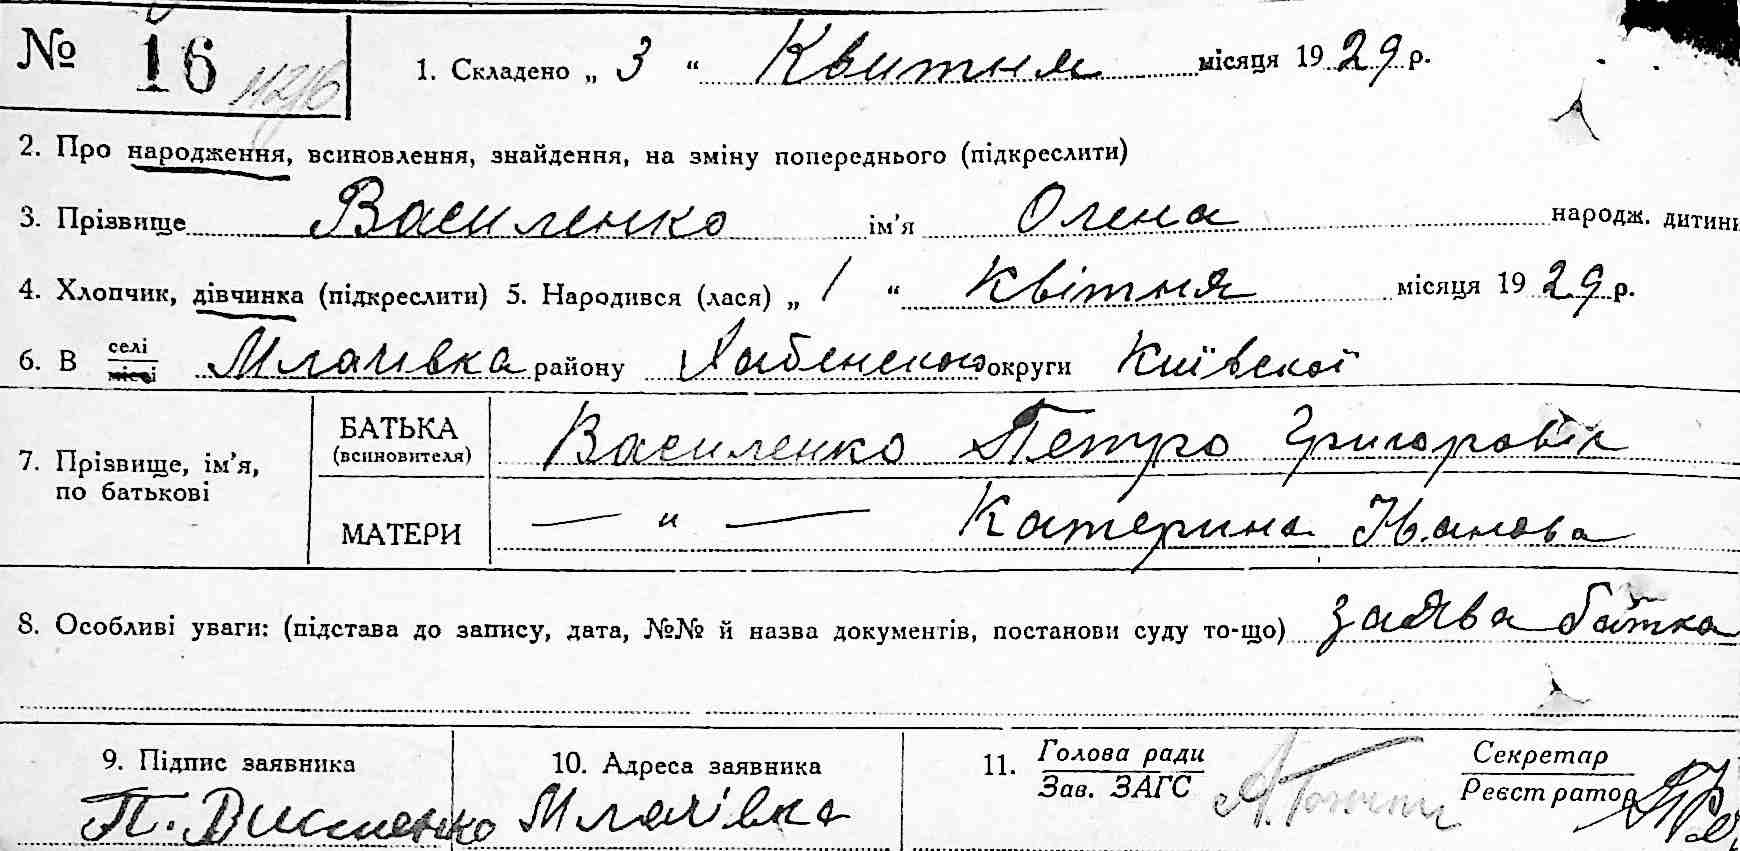 № 16
1. Складено „ 3 “ Квитня місяця 1929 р.
2. Про народження, всиновлення, знайдення, на зміну попереднього (підкреслити)
3. Прізвище Василенко ім’я Олена народж. дитини
4. Хлопчик, дівчинка (підкреслити) 5. Народився (лася) „ 1 “ Квітня місяця 1929 р.
6. В селі місті Млачівка району Хабенского округи Київскої
7. Прізвище, ім’я, по батькові
БАТЬКА (всиновителя) Василенко Петро Григоровіч
МАТЕРИ — „ — Катерина Иванова
8. Особливі уваги: (підстава до запису, дата, №№ й назва документів, постанови суду то-що) заява батка
9. Підпис заявника
10. Адреса заявника
11. Голова ради
Зав. ЗАГС
Секретар
Реєстратор
П. Василенко Млачівка